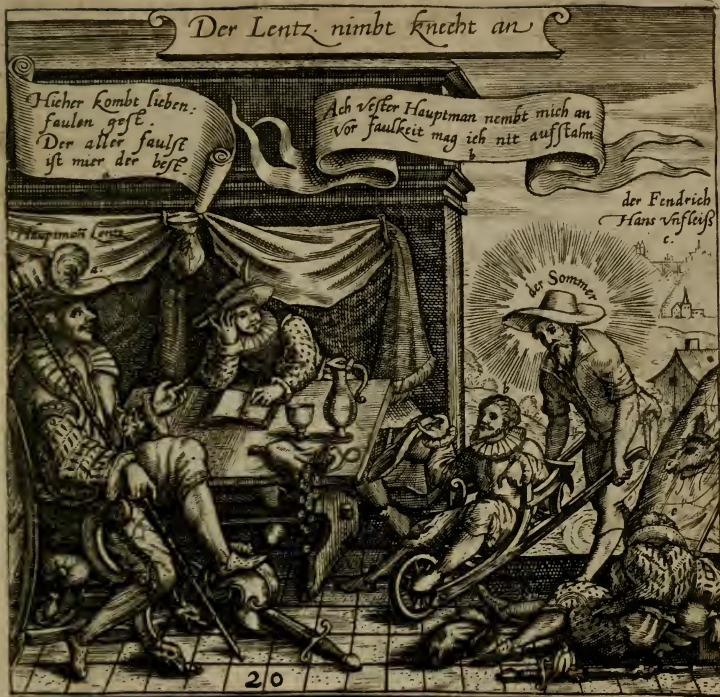 Der Lentz nimbt knecht an
Hieher kombt lieben:
faulen gest.
Der aller faulst
ist mier der best.
a
Ach Vester Hauptman nembt mich an
Vor faulkeit mag ich nit aufstahn
b
der Fendrich
Hans Vnfleiß
c.
Hauptman Lentz
a.
der Sommer
b
20